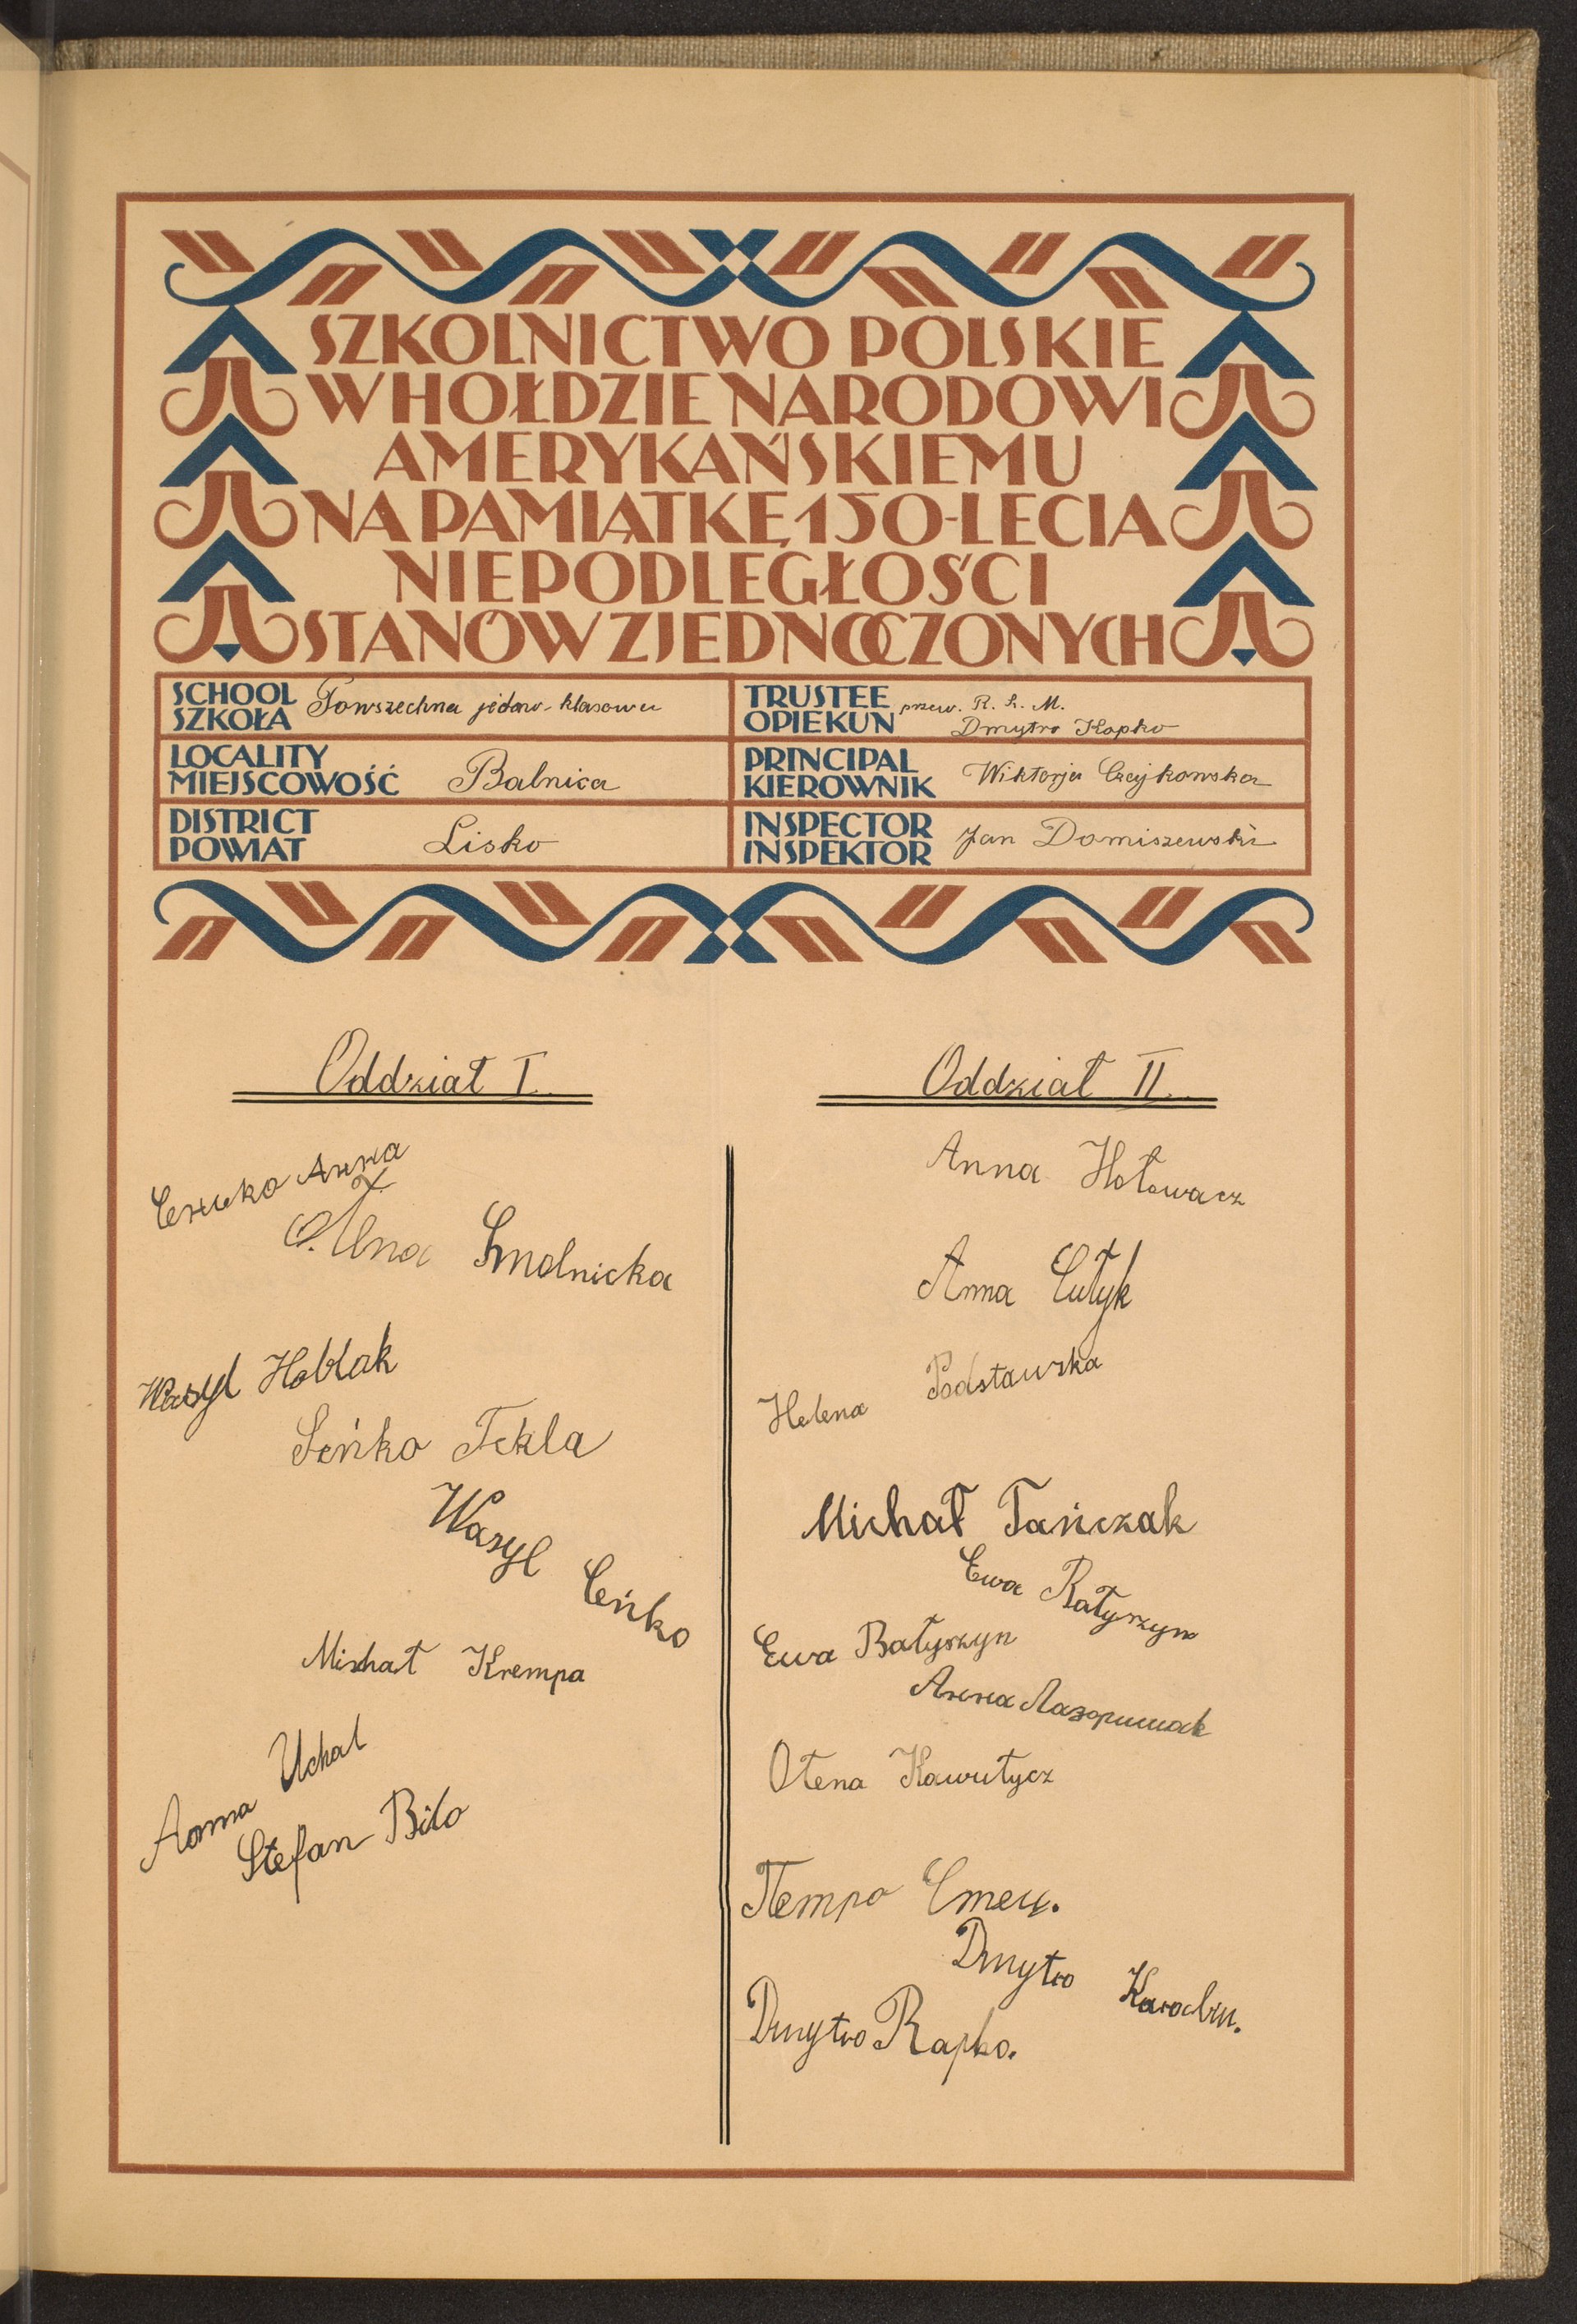 SZKOLNICTWO POLSKIE
W HOŁDZIE NARODOWI
AMERYKAŃSKIEMU
NA PAMIĄTKĘ 150-LECIA
NIEPODLEGŁOŚCI
STANÓW ZJEDNOCZONYCH
SCHOOL
SZKOŁA Powszechna jedno-klasowa
TRUSTEE
OPIEKUN przew. R. S. M.
Dmytro Rapko
LOCALITY
MIEJSCOWOŚĆ Balnica
PRINCIPAL
KIEROWNIK Wiktorja Czajkowska
DISTRICT
POWIAT Lisko
INSPECTOR
INSPEKTOR Jan Domiszewski
Oddział I.
Anna
Smolnicka
Wasyl Hoblak
Seńko Tekla
Wasyl Ceńko
Michał Krempa
Anna Uchal
Stefan Bilo
Oddział II.
Anna Hołowacz
Anna Cułyk
Helena Podstawska
Michał Tańczak
Ewa Ratyszyn
Ewa Batyszyn
Анна
Ołena Kawułycz
Петро Емец.
Dmytro
Dmytro Rapko.